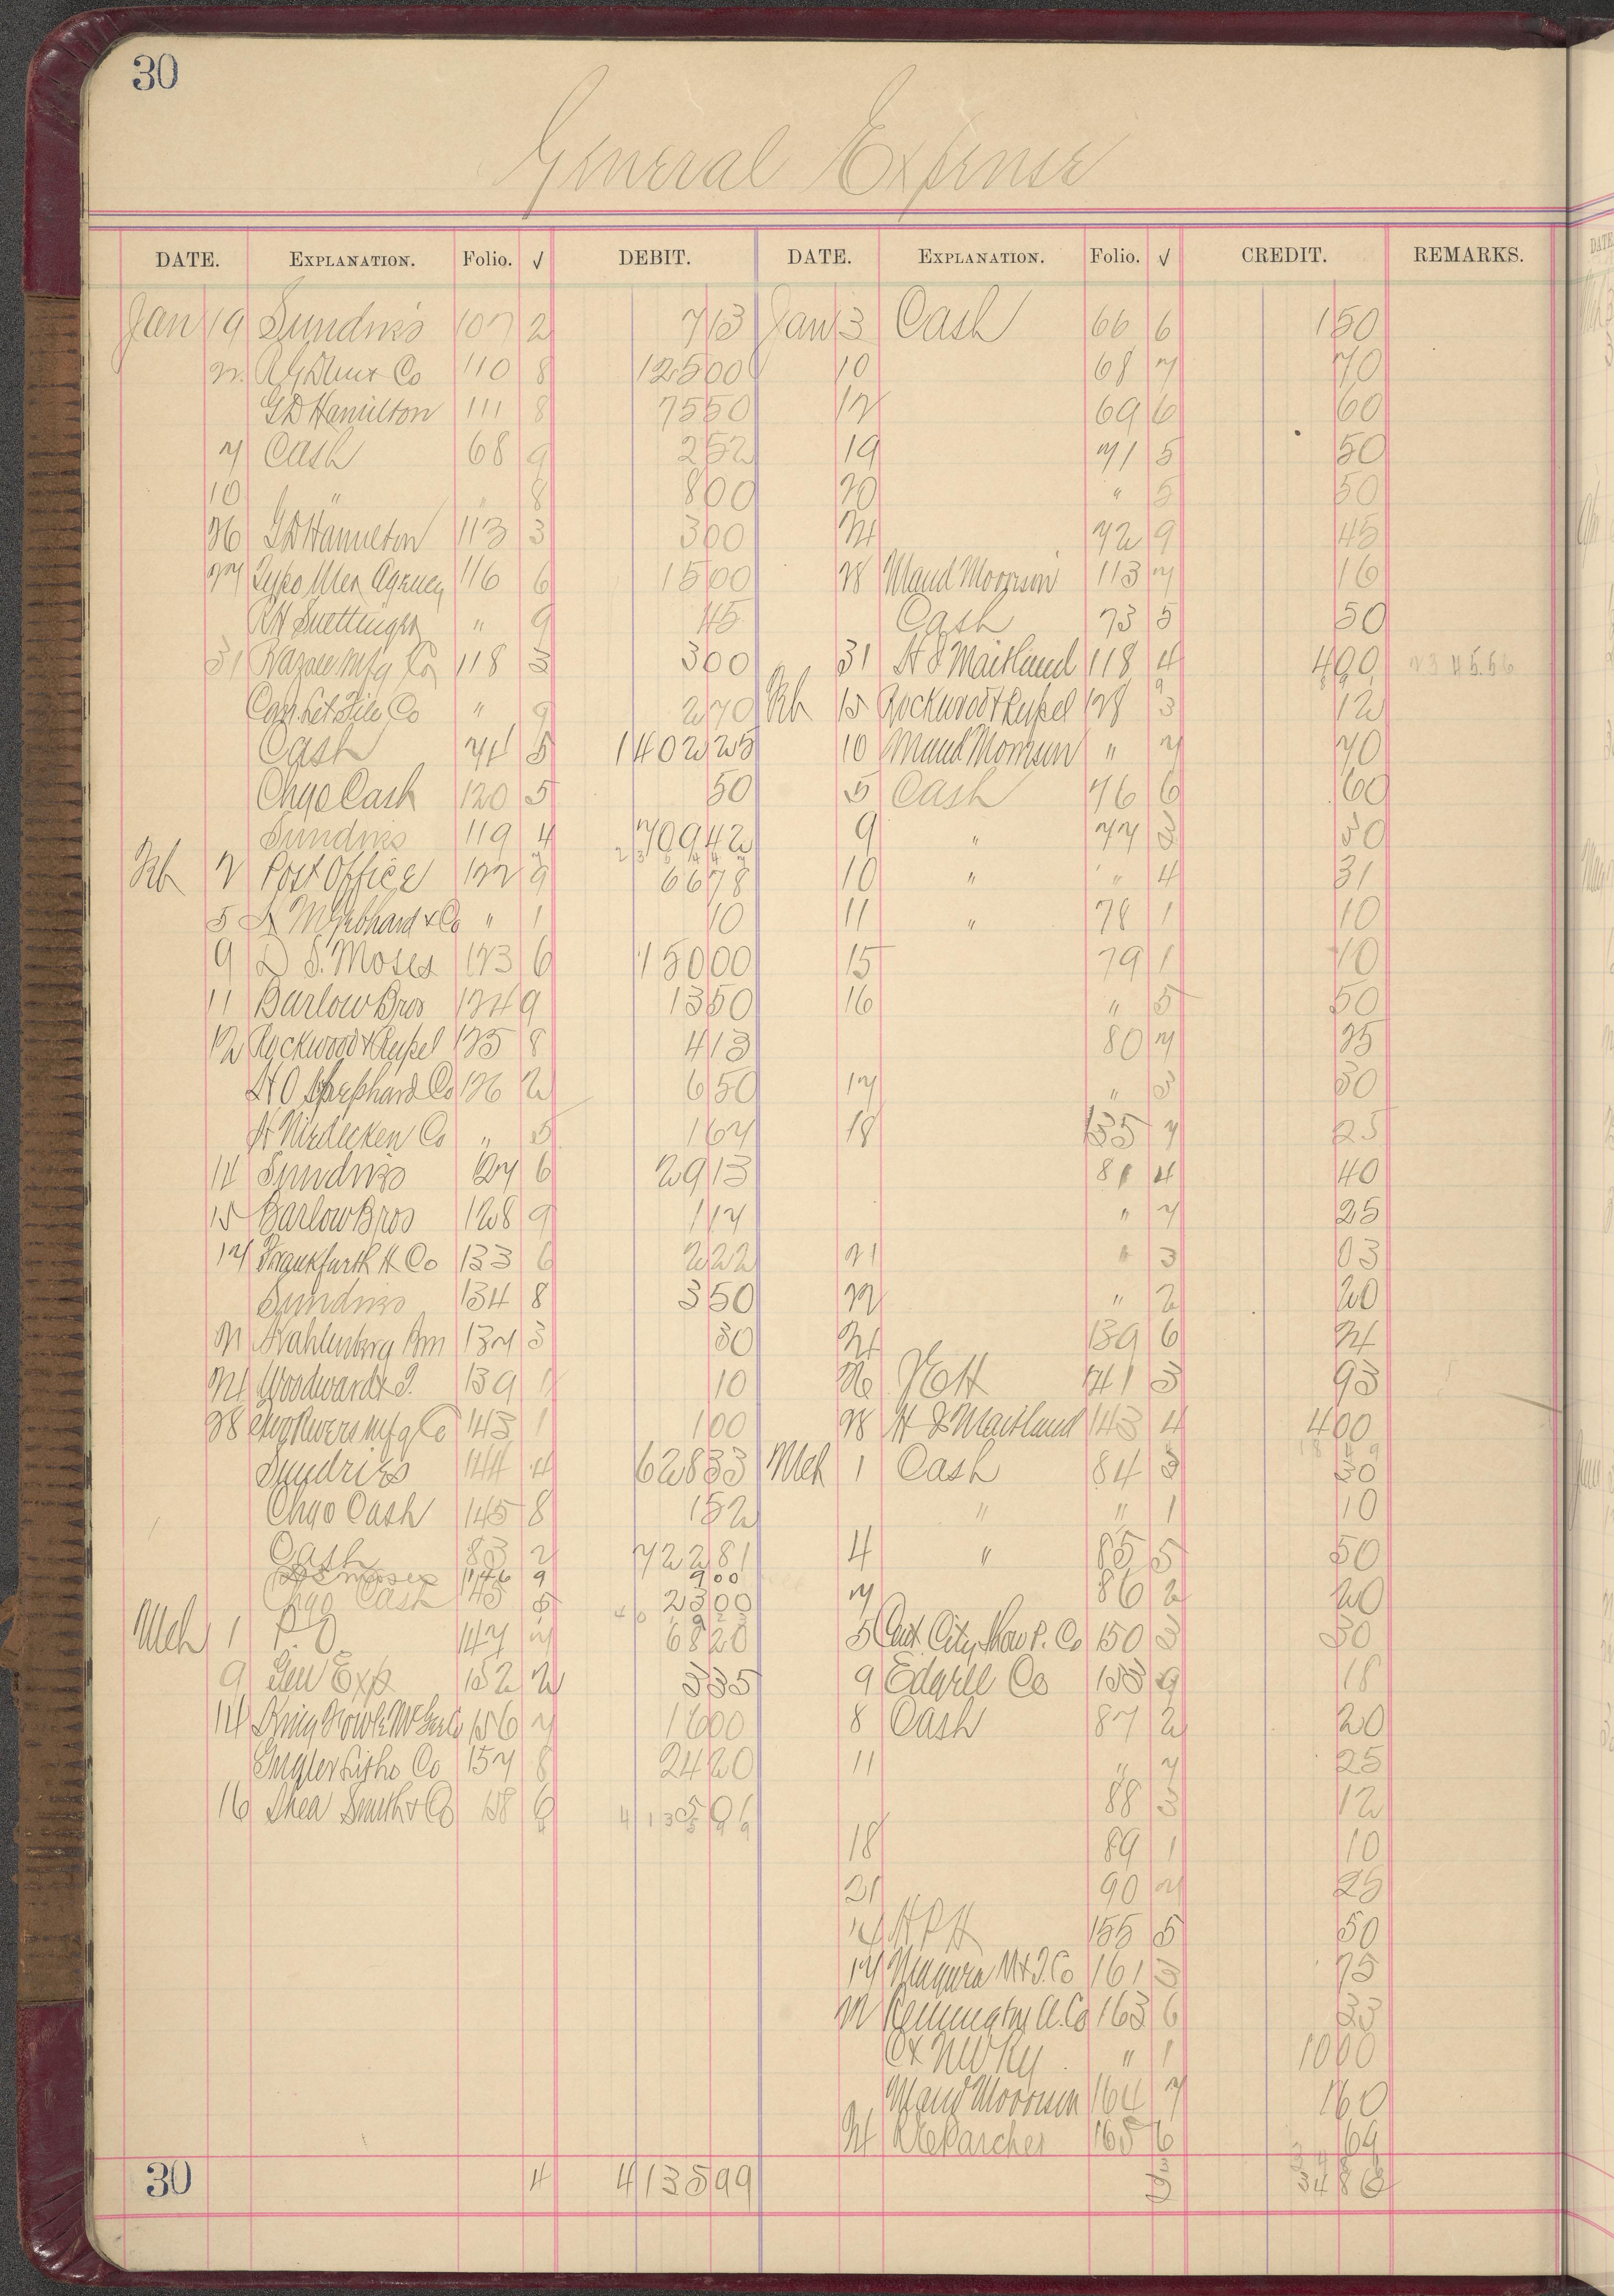 30
General Expense
DATE. EXPLANATION. Folio. √ DEBIT. DATE. EXPLANATION. Folio. √ CREDIT. REMARKS.
Jan 19 Sundries 107 2 713 Jan 3 Cash 66 6 150
R G Dun & Co 110 8 12500 10 68 7 70
G D Hamilton 111 8 7550 12 69 6 60
7 Cash 68 9 252 19 71 5 50
10 " " 8 800 20 " 5 50
26 G D Hamilton 113 3 300 24 72 9 45
27 Typo Mer Agency 116 6 1500 28 Maud Morrison 113 7 16
R H Suettinger " 9 45 Cash 73 5 50
31 Mfg Co 118 3 300 31 H S Maitland 118 4 400
Co " 9 270 Feb 15 Rockwood & 128 3 12
Cash 74 5 140225 10 Maud Morrison " 7 70
Chgo Cash 120 5 50 5 Cash 76 6 60
Sundries 119 4 70942 9 " 77 3 30
Feb 2 Post Office 122 9 6678 10 " " 4 31
5 & Co " 1 10 11 " 78 1 10
9 D S. Moses 123 6 15000 15 79 1 10
11 Barlow Bros 124 9 1350 16 " 5 50
12 Rockwood & 125 8 413 80 7 25
H O Shephard Co 126 2 650 17 " 3 30
H Niedecken Co " 5 167 18 135 7 25
14 Sundries 127 6 2913 81 4 40
15 Barlow Bros 128 9 117 " 7 25
17 Frankfurth H Co 133 6 222 21 " 3 03
Sundries 134 8 350 22 " 2 20
21 Kahlenberg Bm 137 3 30 24 139 6 24
24 Woodward & T. 139 1 10 26 141 3 93
28 Two Rivers Mfg Co 143 1 100 28 H S Maitland 143 4 400
Sundries 144 4 62833 Mch 1 Cash 84 3 30
Chgo Cash 145 8 152 " " 1 10
Cash 83 2 72281 4 " 85 5 50
D S Moses 146 9 900
Chgo Cash 145 5 2300 7 86 2 20
Mch 1 P O 147 7 6820 5 City Show P. Co 150 3 30
9 Gen Exp 152 2 335 9 Co 153 9 18
14 156 7 1600 8 Cash 87 2 20
Litho Co 157 8 2420 11 " 7 25
16 Shea Smith & Co 158 6 506 88 3 12
18 89 1 10
21 90 7 25
14 H P H 155 5 50
17 Niagara M & T. Co 161 3 75
22 Remington Co 163 6 33
C & N W Ry " 1 1000
Maud Morrison 164 7 160
24 165 6 69
30 4 413599 3486